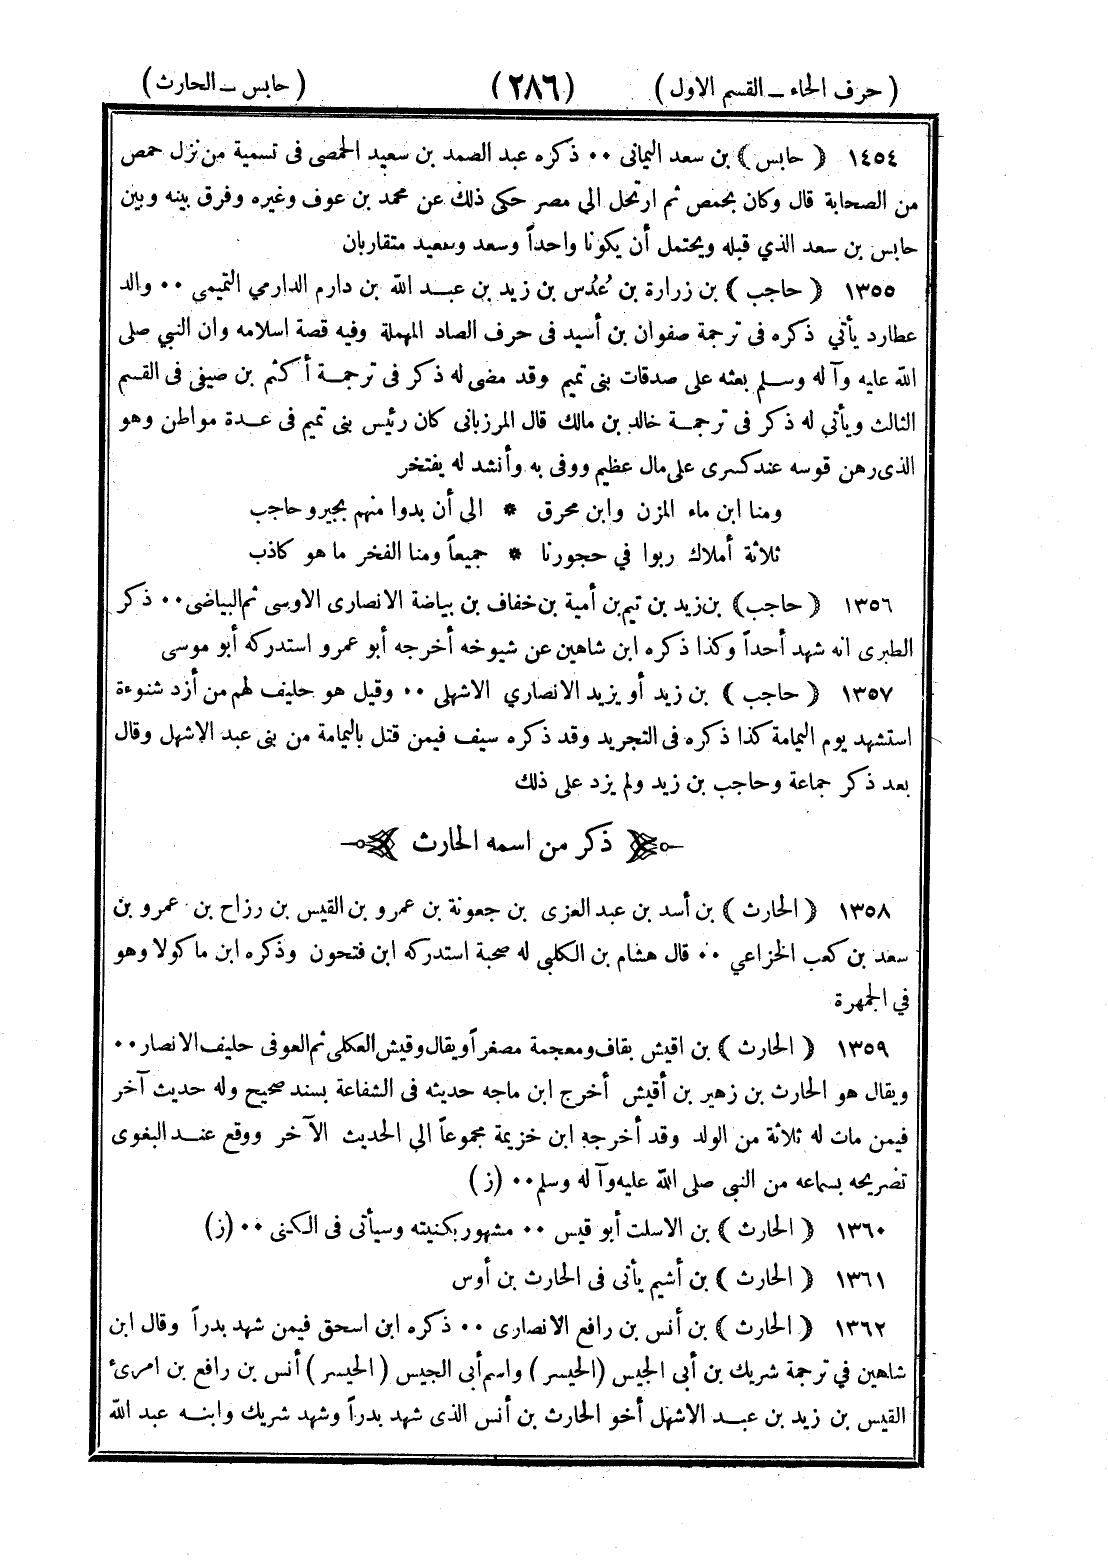 ( حرف الحاء ــ القسم الاول ) (٢٨٦) ( حابس ــ الحارث )
١٤٥٤ ( حابس ) بن سعد اليماني ٠٠ ذكره عبد الصمد بن سعيد الحمصى فى تسمية من نزل حمص
من الصحابة قال وكان بحمص ثم ارتحل الي مصر حكى ذلك عن محمد بن عوف وغيره وفرق بينه وبين
حابس بن سعد الذي قبله ويحتمل أن يكونا واحداً وسعد وسعيد متقاربان
١٣٥٥ ( حاجب ) بن زرارة بن عُدُس بن زيد بن عبـد الله بن دارم الدارمي التميمى ٠٠ والد
عطارد يأتي ذكره فى ترجمة صفوان بن أسيد فى حرف الصاد المهملة وفيه قصة اسلامه وان النبي صلى
الله عليه وآله وسـلم بعثه على صدقات بنى تميم وقد مضى له ذكر فى ترجمـة أكثم بن صيفى فى القسم
الثالث ويأتي له ذكر فى ترجمـة خالد بن مالك قال المرزبانى كان رئيس بنى تميم فى عـدة مواطن وهو
الذى رهن قوسه عند كسرى على مال عظيم ووفى به وأنشد له يفتخر
ومنا ابن ماء المزن وابن محرق * الى أن بدوا منهم بجير وحاجب
ثلاثة أملاك ربوا في حجورنا * جميعاً ومنا الفخر ما هو كاذب
١٣٥٦ ( حاجب ) بن زيد بن تيم بن أمية بن خفاف بن بياضة الانصارى الاوسى ثم البياضى ٠٠ ذكر
الطبرى انه شهد أحداً وكذا ذكره ابن شاهين عن شيوخه أخرجه أبو عمرو استدركه أبو موسى
١٣٥٧ ( حاجب ) بن زيد أو يزيد الانصاري الاشهلى ٠٠ وقيل هو حليف لهم من أزد شنوءة
استشهد يوم اليمامة كذا ذكره فى التجريد وقد ذكره سيف فيمن قتل باليمامة من بنى عبد الاشهل وقال
بعد ذكر جماعة وحاجب بن زيد ولم يزد على ذلك
ذكر من اسمه الحارث
١٣٥٨ ( الحارث ) بن أسد بن عبد العزى بن جعونة بن عمرو بن القيس بن رزاح بن عمرو بن
سعد بن كعب الخزاعي ٠٠ قال هشام بن الكلبى له صحبة استدركه ابن فتحون وذكره ابن ماكولا وهو
في الجمهرة
١٣٥٩ ( الحارث ) بن اقيش بقاف ومعجمة مصغراً ويقال وقيش العكلى ثم العوفى حليف الانصار ٠٠
ويقال هو الحارث بن زهير بن أقيش أخرج ابن ماجه حديثه فى الشفاعة بسند صحيح وله حديث آخر
فيمن مات له ثلاثة من الولد وقد أخرجه ابن خزيمة مجموعاً الي الحديث الآخر ووقع عنـد البغوى
تصريحه بسماعه من النبى صلى الله عليه وآله وسلم ٠٠ (ز)
١٣٦٠ ( الحارث ) بن الاسلت أبو قيس ٠٠ مشهور بكنيته وسيأتى فى الكنى ٠٠ (ز)
١٣٦١ ( الحارث ) بن أشيم يأتى فى الحارث بن أوس
١٣٦٢ ( الحارث ) بن أنس بن رافع الانصارى ٠٠ ذكره ابن اسحق فيمن شهد بدراً وقال ابن
شاهين في ترجمة شريك بن أبى الجيس (الحيسر) واسم أبى الجيس (الحيسر) أنس بن رافع بن امرئ
القيس بن زيد بن عبـد الاشهل أخو الحارث بن أنس الذى شهد بدراً وشهد شريك وابنـه عبد الله